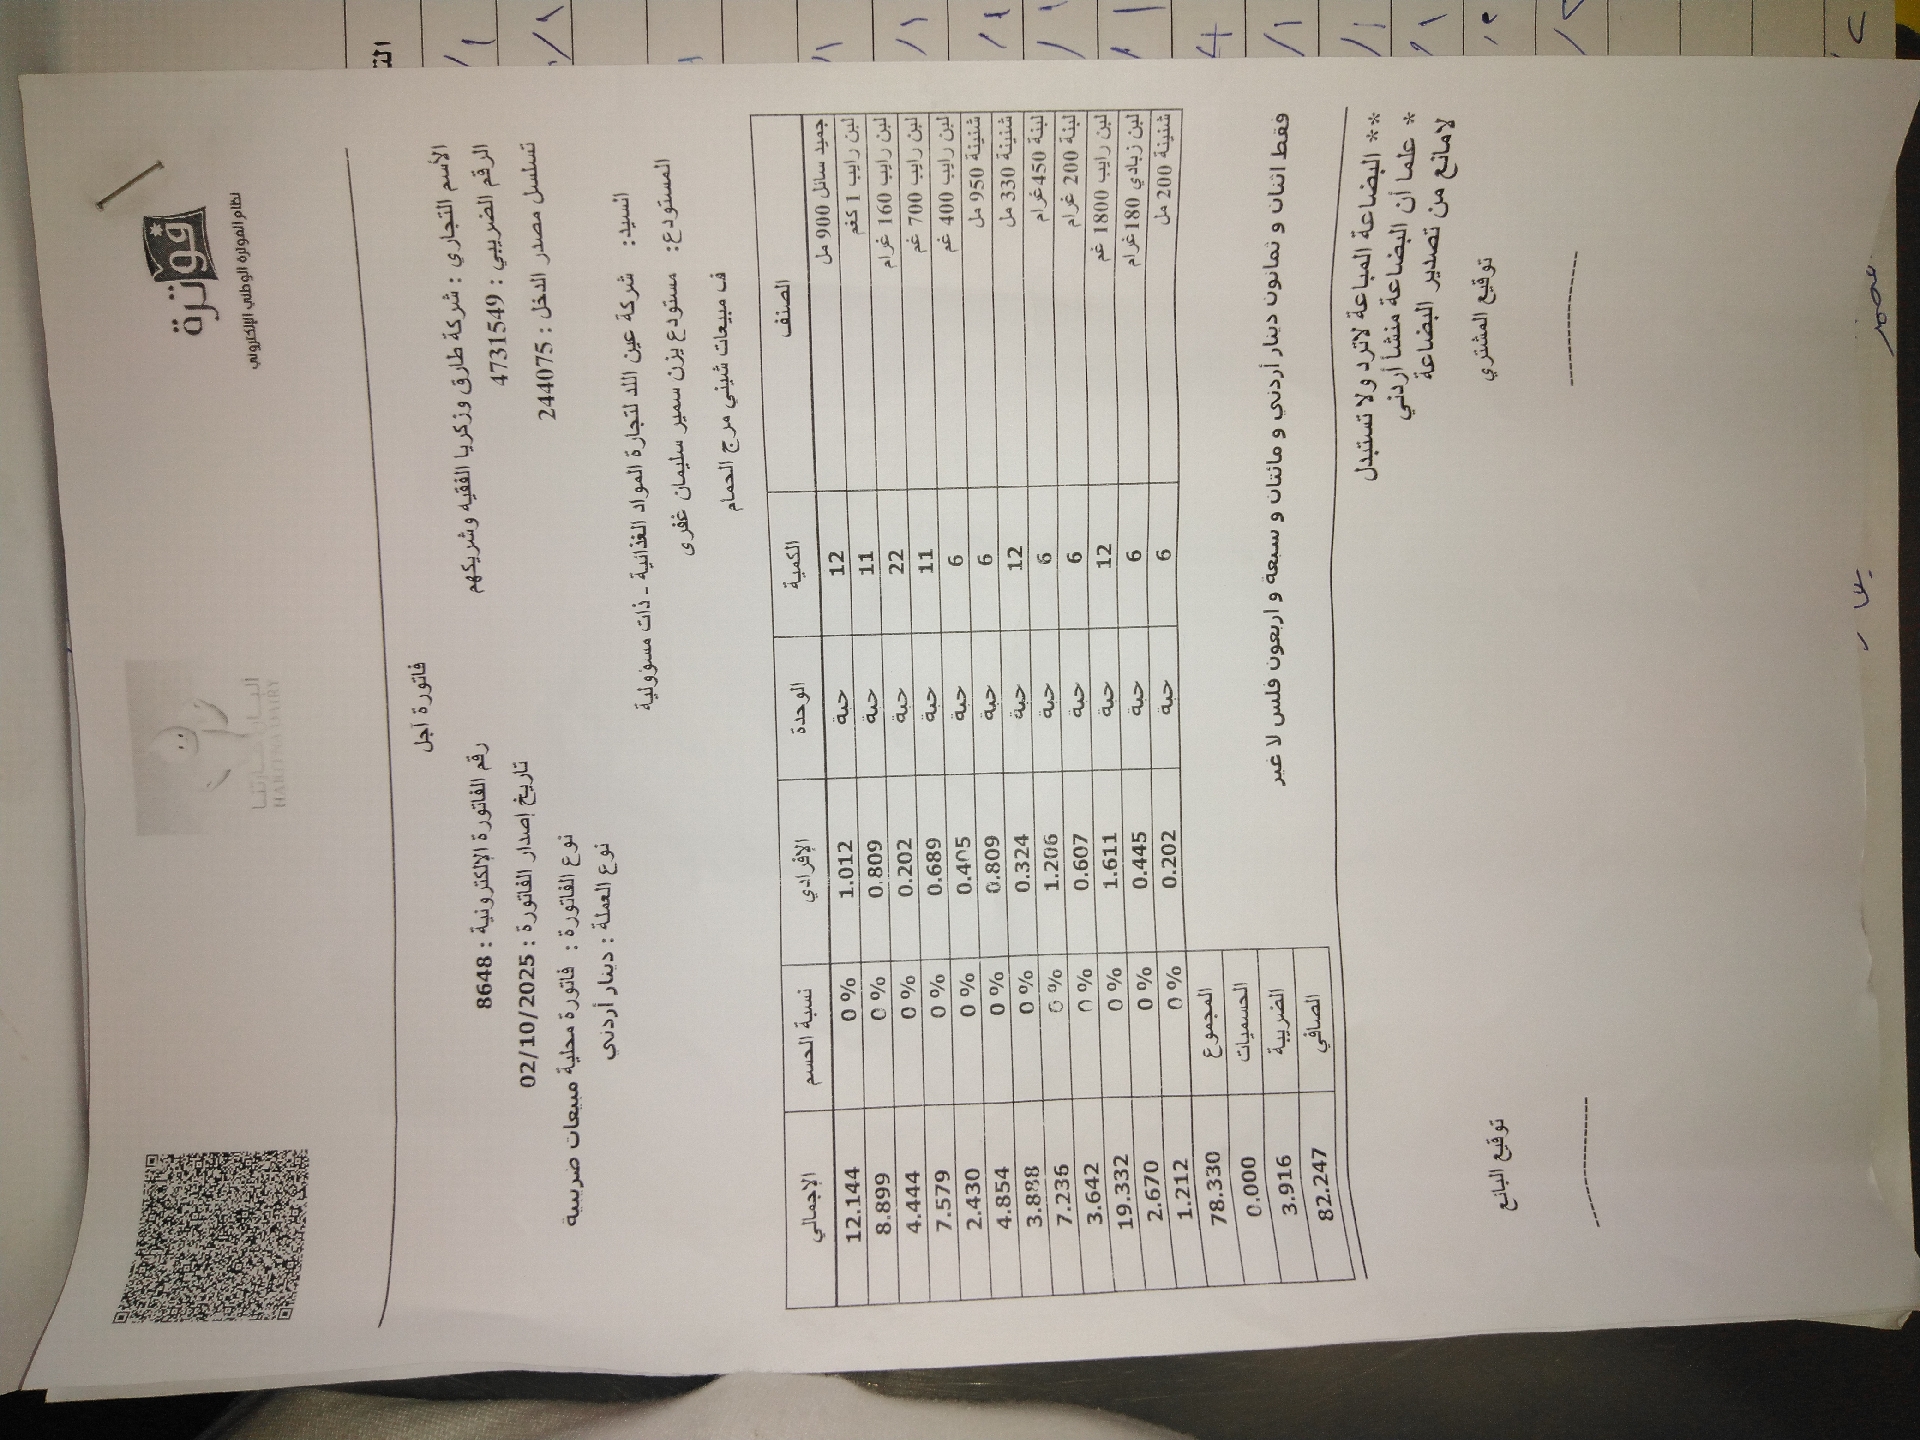 فوترة
نظام الفوترة الوطني الإلكتروني
البان حارتنا
HARITNA DAIRY
فاتورة آجل
الأسم التجاري : شركة طارق وزكريا الفقيه وشريكهم
رقم الفاتورة الإلكترونية : 8648
الرقم الضريبي : 4731549
تاريخ إصدار الفاتورة : 02/10/2025
تسلسل مصدر الدخل : 244075
نوع الفاتورة : فاتورة محلية مبيعات ضريبية
نوع العملة : دينار أردني
السيد: شركة عين اللد لتجارة المواد الغذائية - ذات مسؤولية
المستودع: مستودع يزن سمير سليمان غفرى
ف مبيعات شيني مرج الحمام
الصنف الكمية الوحدة الإفرادي نسبة الحسم الإجمالي
جميد سائل 900 مل 12 حبة 1.012 0 % 12.144
لبن رايب 1 كغم 11 حبة 0.809 0 % 8.899
لبن رايب 160 غرام 22 حبة 0.202 0 % 4.444
لبن رايب 700 غم 11 حبة 0.689 0 % 7.579
لبن رايب 400 غم 6 حبة 0.405 0 % 2.430
شنينة 950 مل 6 حبة 0.809 0 % 4.854
شنينة 330 مل 12 حبة 0.324 0 % 3.888
لبنة 450غرام 6 حبة 1.206 0 % 7.236
لبنة 200 غرام 6 حبة 0.607 0 % 3.642
لبن رايب 1800 غم 12 حبة 1.611 0 % 19.332
لبن زبادي 180غرام 6 حبة 0.445 0 % 2.670
شنينة 200 مل 6 حبة 0.202 0 % 1.212
المجموع 78.330
الحسميات 0.000
الضريبة 3.916
الصافي 82.247
فقط اثنان و ثمانون دينار أردني و مائتان و سبعة و اربعون فلس لا غير
** البضاعة المباعة لاترد ولا تستبدل
* علما أن البضاعة منشأ أردني
لامانع من تصدير البضاعة
توقيع المشتري توقيع البائع